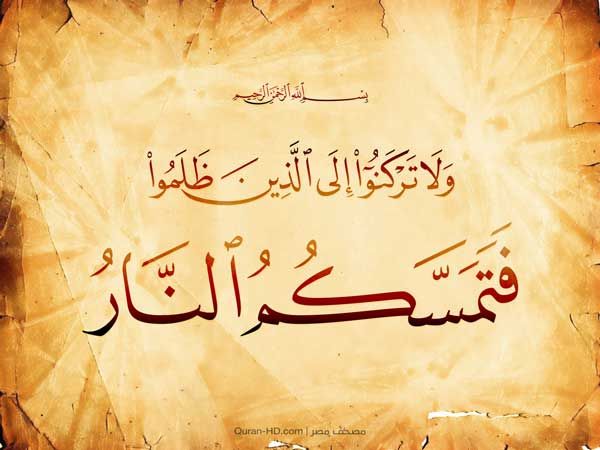 بِسْمِ ٱللَّهِ ٱلرَّحْمَٰنِ ٱلرَّحِيمِ
وَلَا تَرْكَنُوٓا۟ إِلَى ٱلَّذِينَ ظَلَمُوا۟
فَتَمَسَّكُمُ ٱلنَّارُ
Quran-HD.com | مصحف مصر